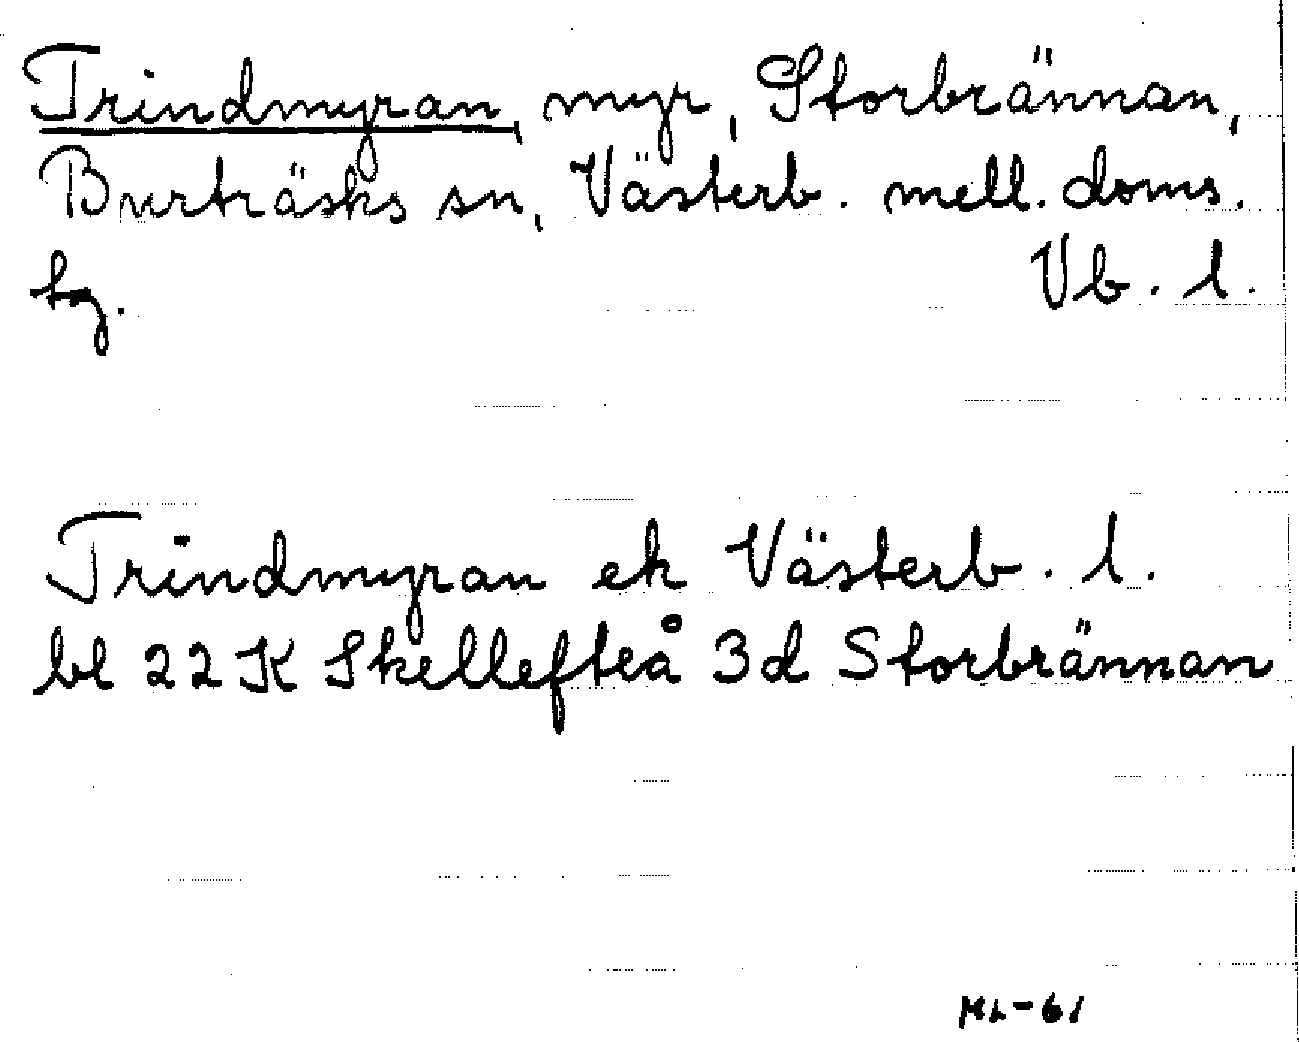 Trindmyran, myr, Storbrännan,
Burträsks sn, Västerb. mell. doms.
tg. Vb. l.
Trindmyran ek Västerb. l.
bl 22 K Skellefteå 3d Storbrännan
ML-61